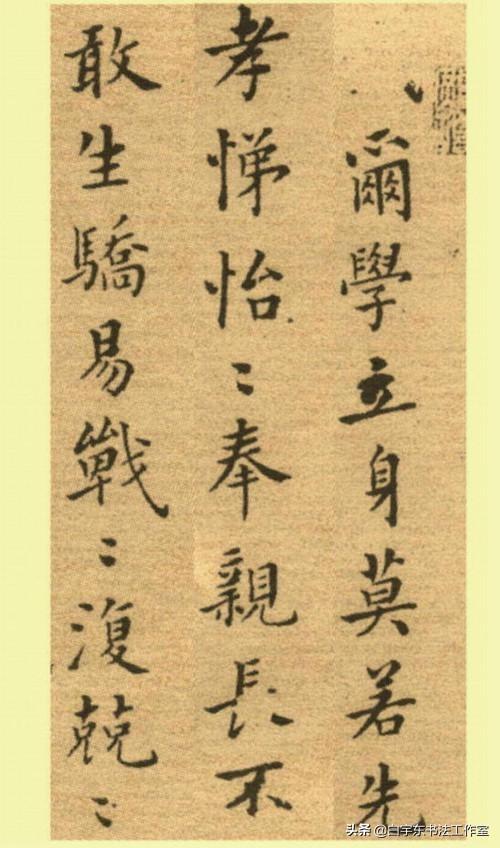 爾學立身莫若先
孝悌怡〻奉親長不
敢生驕易戰〻復兢〻
头条 @白宇东书法工作室